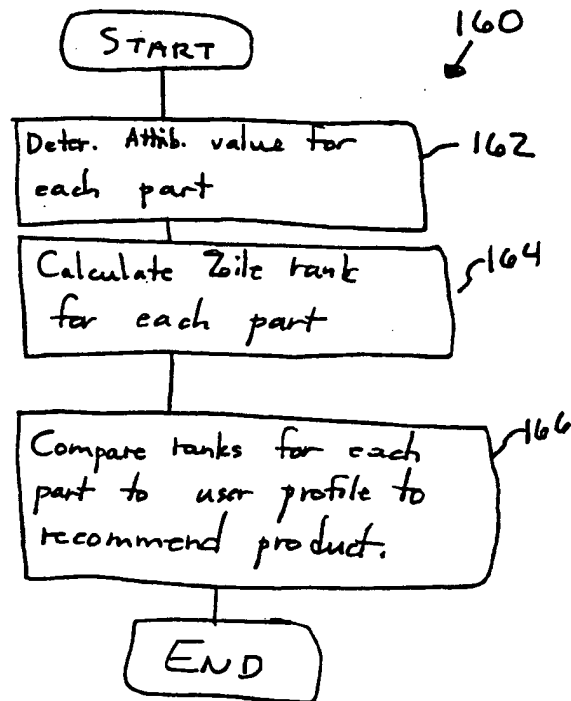 START
160
Deter. Attrib. value for
each part
162
Calculate %ile rank
for each part
164
Compare ranks for each
part to user profile to
recommend product.
166
END